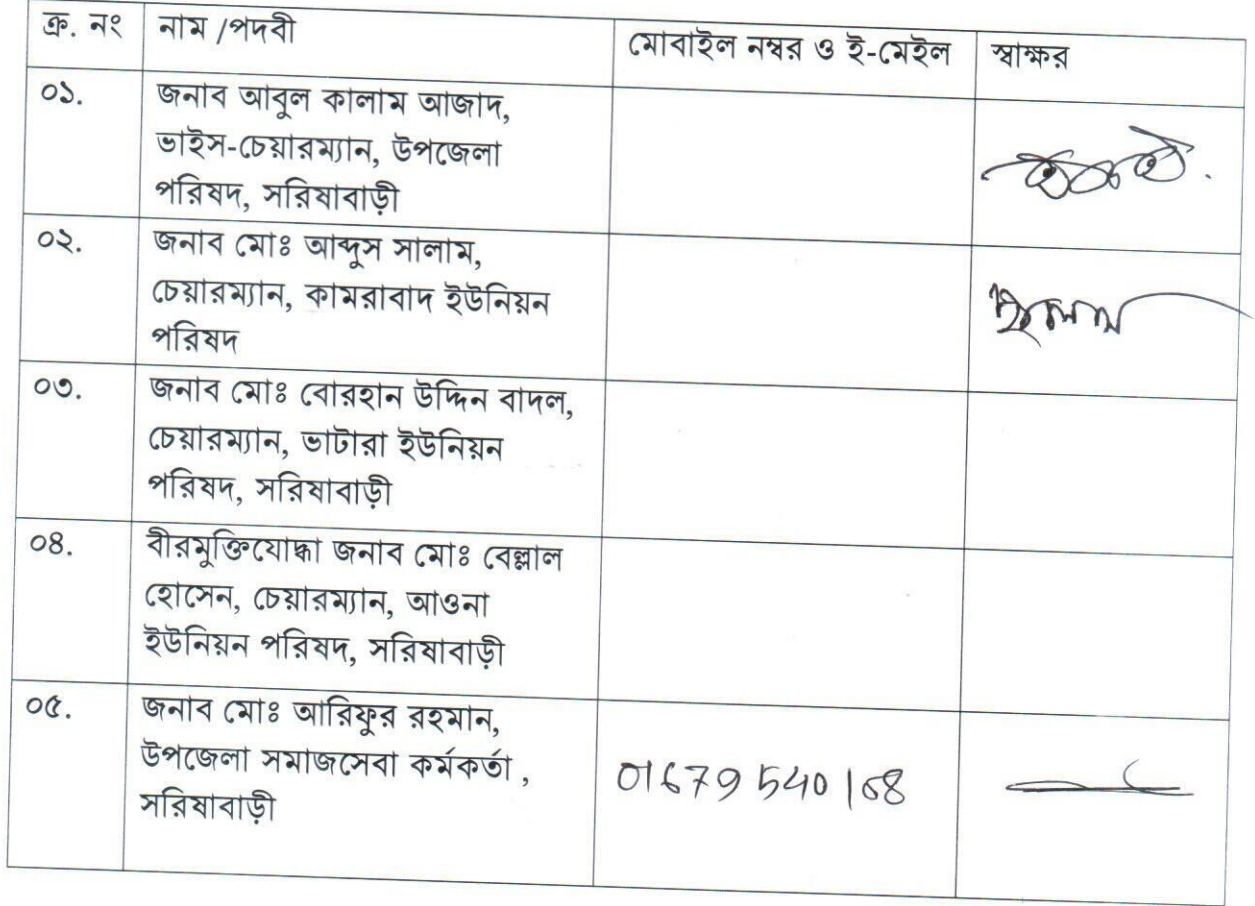 ক্র. নং নাম /পদবী মোবাইল নম্বর ও ই-মেইল স্বাক্ষর
০১. জনাব আবুল কালাম আজাদ,
ভাইস-চেয়ারম্যান, উপজেলা
পরিষদ, সরিষাবাড়ী
০২. জনাব মোঃ আব্দুস সালাম,
চেয়ারম্যান, কামরাবাদ ইউনিয়ন
পরিষদ
০৩. জনাব মোঃ বোরহান উদ্দিন বাদল,
চেয়ারম্যান, ভাটারা ইউনিয়ন
পরিষদ, সরিষাবাড়ী
০৪. বীরমুক্তিযোদ্ধা জনাব মোঃ বেল্লাল
হোসেন, চেয়ারম্যান, আওনা
ইউনিয়ন পরিষদ, সরিষাবাড়ী
০৫. জনাব মোঃ আরিফুর রহমান,
উপজেলা সমাজসেবা কর্মকর্তা ,
সরিষাবাড়ী
01679 540 168